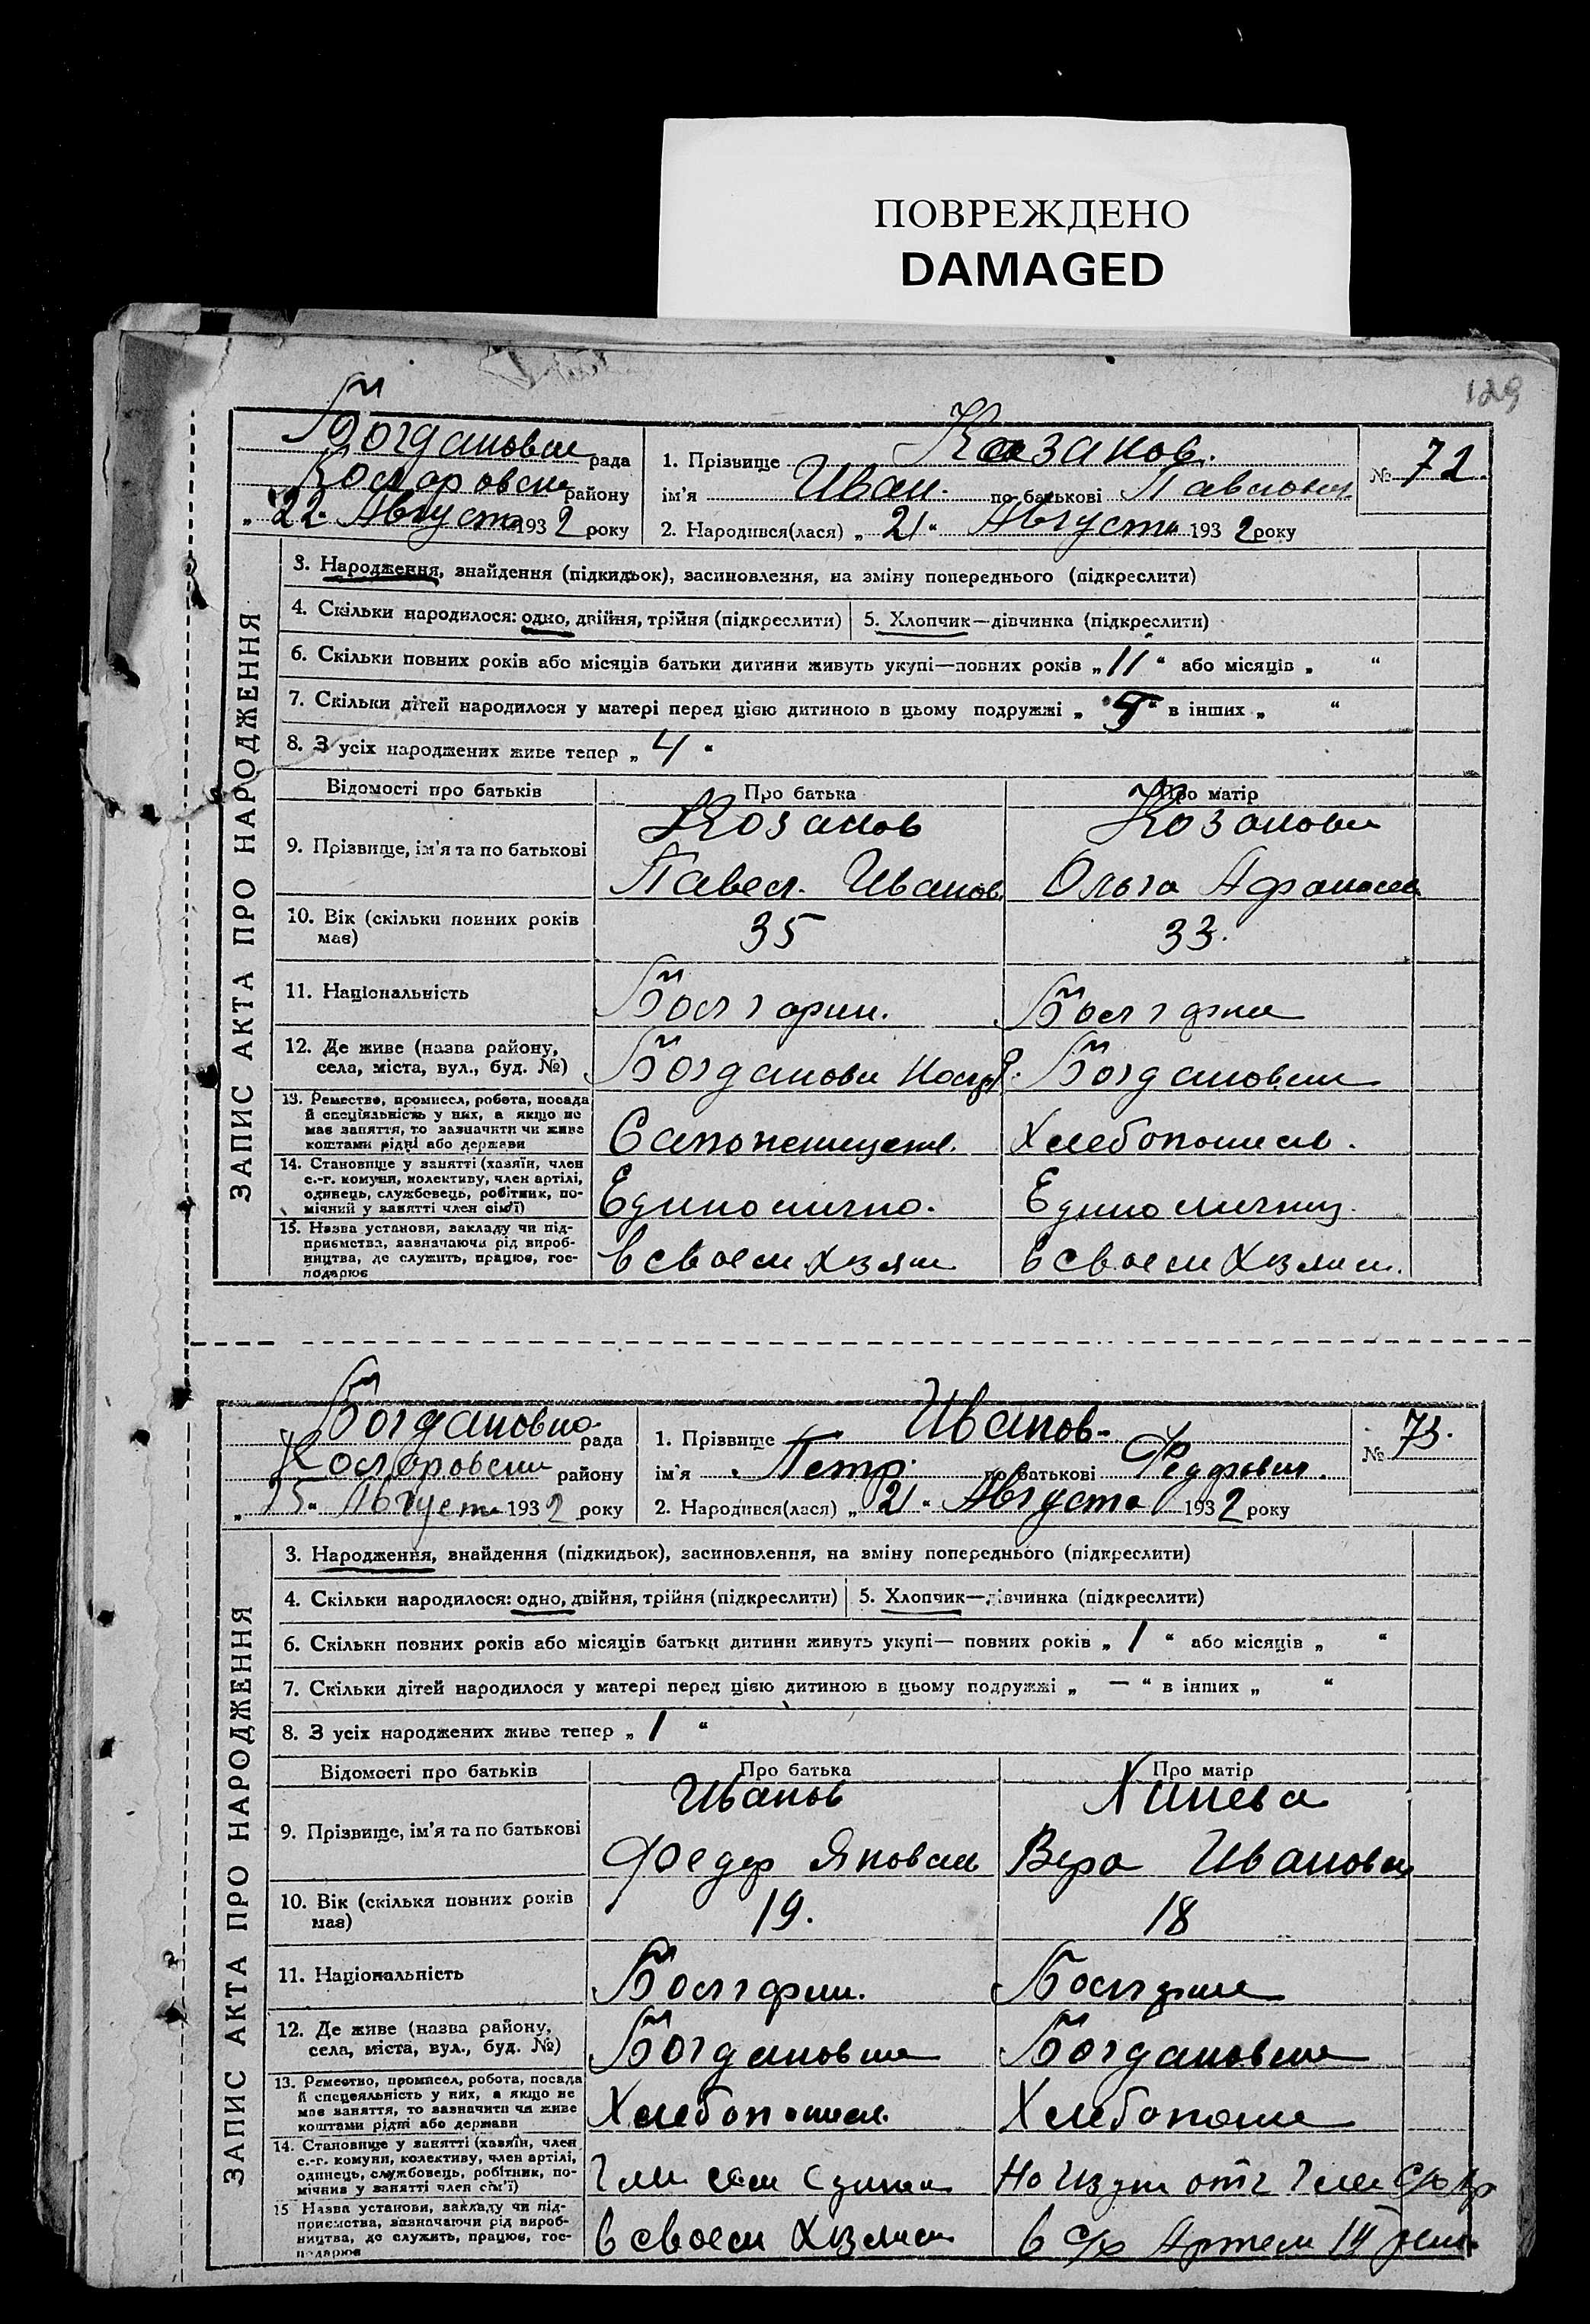 ПОВРЕЖДЕНО
DAMAGED
129
ЗАПИС АКТА ПРО НАРОДЖЕННЯ
Богдановск рада
району
„22“ Августа 1932 року
1. Прізвище Казанов.
ім'я Иван. по батькові Павлович
2. Народився(лася) „21“ Августа 1932 року
№ 72
3. Народження, знайдення (підкидьок), засиновлення, на зміну попереднього (підкреслити)
4. Скільки народилося: одно, двійня, трійня (підкреслити)
5. Хлопчик—дівчинка (підкреслити)
6. Скільки повних років або місяців батьки дитини живуть укупі—повних років „11“ або місяців „ “
7. Скільки дітей народилося у матері перед цією дитиною в цьому подружжі „ “ в інших „ “
8. З усіх народжених живе тепер „4“
Відомості про батьків
Про батька
Про матір
9. Прізвище, ім'я та по батькові
Козанов
Павел. Иванов.
Козанова
Ольга Афанасев
10. Вік (скільки повних років
має)
35
33.
11. Національність
Болгарин.
Болгарка
12. Де живе (назва району,
села, міста, вул., буд. №)
Богдановк
Богдановка
13. Ремество, промисел, робота, посада
й спеціяльність у них, а якщо не
має заняття, то зазначити чи живе
коштами рідні або держави
Хлебопашест.
14. Становище у занятті (хазяїн, член
с.-г. комуни, колективу, член артілі,
одинець, службовець, робітник, по-
мічний у занятті член сім'ї)
Единолично.
Единоличниц.
15. Назва установи, закладу чи під-
приємства, зазначаючи рід вироб-
ництва, де служить, працює, гос-
подарює
в своем Хозяй
в своем Хозяйст.
ЗАПИС АКТА ПРО НАРОДЖЕННЯ
Богдановка рада
району
„25“ Августа 1932 року
1. Прізвище Иванов.
ім'я Петр. по батькові Федорович.
2. Народився(лася) „21“ Августа 1932 року
№ 73.
3. Народження, знайдення (підкидьок), засиновлення, на зміну попереднього (підкреслити)
4. Скільки народилося: одно, двійня, трійня (підкреслити)
5. Хлопчик—дівчинка (підкреслити)
6. Скільки повних років або місяців батьки дитини живуть укупі— повних років „1“ або місяців „ “
7. Скільки дітей народилося у матері перед цією дитиною в цьому подружжі „—“ в інших „ “
8. З усіх народжених живе тепер „1“
Відомості про батьків
Про батька
Про матір
9. Прізвище, ім'я та по батькові
Иванов
Федор Яковл
Вера Ивановн
10. Вік (скільки повних років
має)
19.
18
11. Національність
Болгарин.
Болгарка
12. Де живе (назва району,
села, міста, вул., буд. №)
Богдановка
Богдановка
13. Ремество, промисел, робота, посада
й спецеяльність у них, а якщо не
має заняття, то зазначити чи живе
коштами рідні або держави
Хлебопашест.
Хлебопаше
14. Становище у занятті (хазяїн, член
с.-г. комуни, колективу, член артілі,
одинець, службовець, робітник, по-
мічний у занятті член сім'ї)
15 Назва установи, закладу чи під-
приємства, зазначаючи рід вироб-
ництва, де служить, працює, гос-
подарює
в своем Хозяйст
в с/х Артел